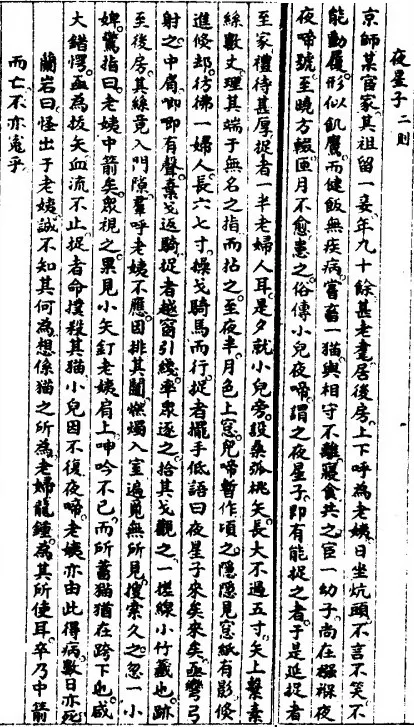 夜星子 二則
京師某宦家。其祖留一妾。年九十餘。甚老耄。居後房。上下呼為老姨。日坐炕頭。不言不笑。不
能動履。形似飢鷹。而健飯無疾病。嘗畜一猫。與相守不離。寢食共之。宦一幼子。尚在襁褓。夜
夜啼號。至曉方輟。匝月不愈。患之。俗傳小兒夜啼。謂之夜星子。即有能捉之者。于是延捉者
至家。禮待甚厚。捉者一半老婦人耳。是夕就小兒旁。設桑弧桃矢。長大不過五寸。矢上繫素
絲數丈。理其端于無名之指而拈之。至夜半。月色上窓。兒啼暫作。頃之。隱隱見窓紙有影。倏
進倏却。彷彿一婦人。長六七寸。操戈騎馬而行。捉者擺手低語曰。夜星子來矣來矣。亟彎弓
射之。中肩。唧唧有聲。棄戈返騎。捉者越窗引綫。率衆逐之。拾其戈觀之。一搓線小竹籤也。跡
至後房。其絲竟入門隙。羣呼老姨不應。因排其闥。燃燭入室。遍覓無所見。搜索久之。忽一小
婢驚指曰。老姨中箭矣。眾視之。果見小矢釘老姨肩上。呻吟不已。而所蓄猫猶在跨下也。咸
大錯愕。亟為拔矢。血流不止。捉者命撲殺其猫。小兒因不復夜啼。老姨亦由此得病。數日亦死
蘭岩曰。怪出于老姨。誠不知其何為。想係猫之所為。老婦龍鍾。為其所使耳。卒乃中箭
而亡。不亦寃乎